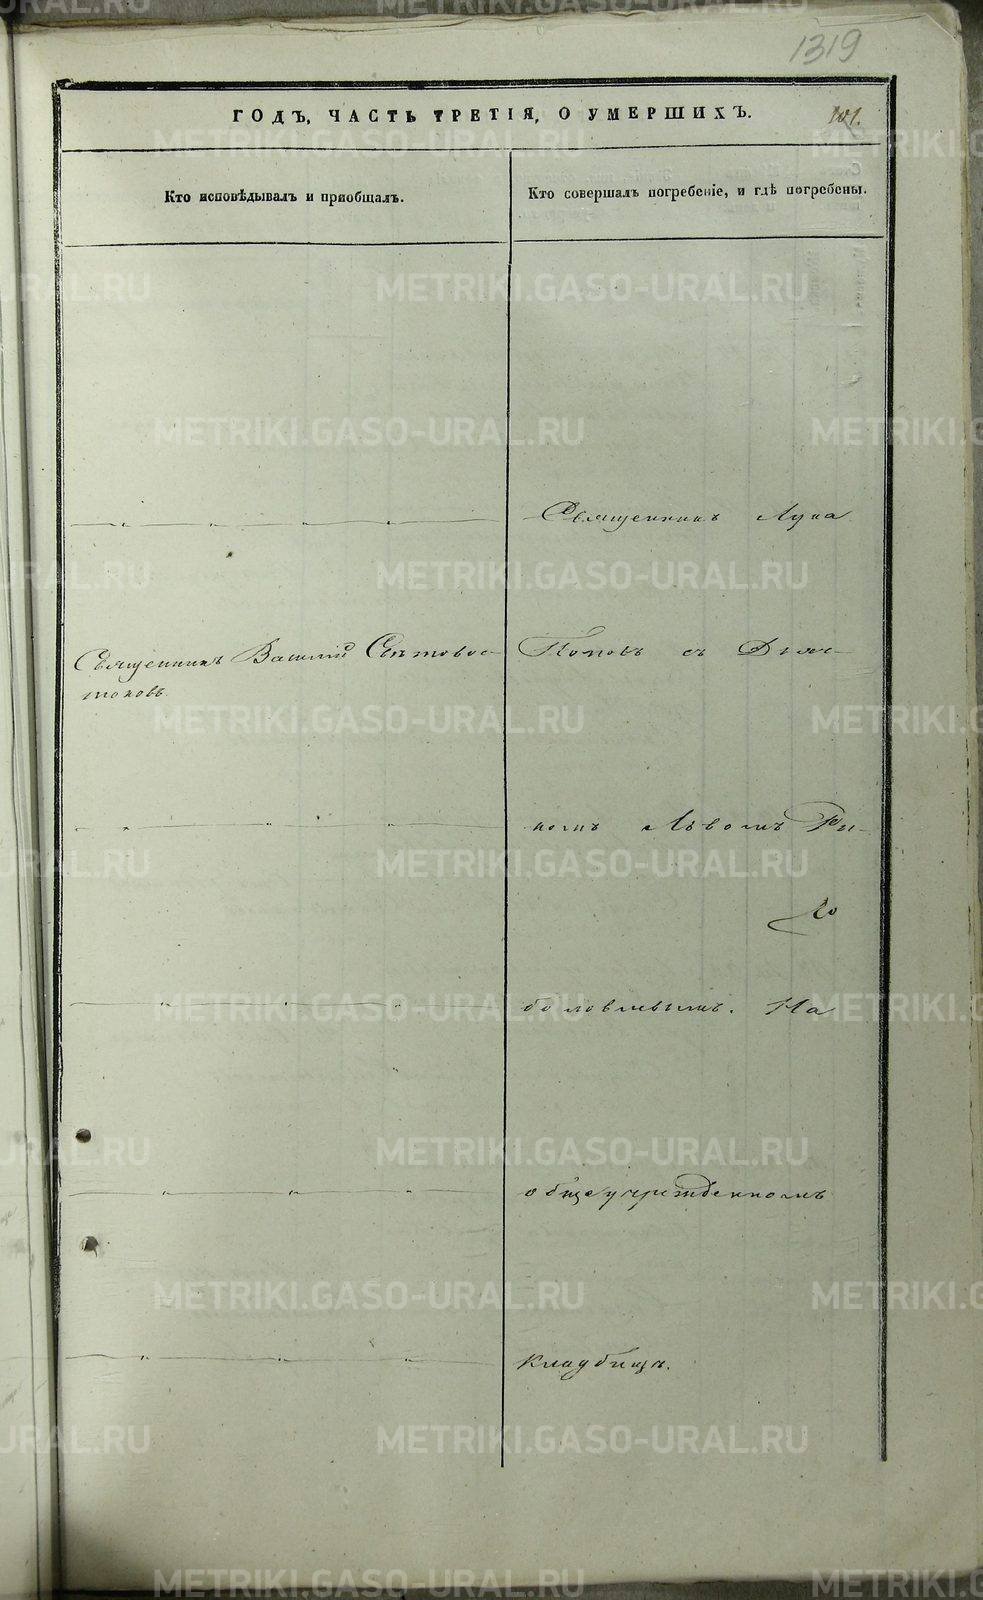 1319
ГОДЪ, ЧАСТЬ ТРЕТІЯ, О УМЕРШИХЪ.
101.
Кто исповѣдывалъ и пріобщалъ.
Кто совершалъ погребеніе, и гдѣ погребены.
Священникъ Лука
Священникъ Василій Свѣтовос-
токовъ
Поповъ съ Дьяч-
комъ Львомъ
На
общеучрежденномъ
кладбищѣ.
METRIKI.GASO-URAL.RU